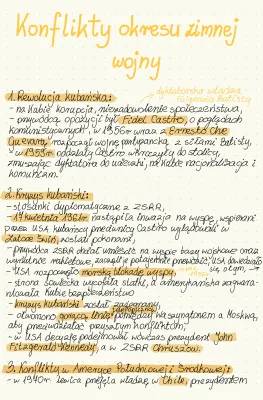 Konflikty okresu zimnej
wojny
1. Rewolucja kubańska:
dyktatorska władza
Batisty
- na Kubie korupcja, niezadowolenie społeczeństwa,
- przywódcą opozycji był Fidel Castro, o poglądach
komunistycznych, w 1956r wraz z Ernesto Che
Guevarą rozpoczął wojnę partyzancką z siłami Batisty,
- w 1959r oddziały Castro wkroczyły do stolicy,
zmuszając dyktatora do ucieczki, na Kubie nacjonalizacja i
komunizm.
2. Kryzys kubański:
- stosunki dyplomatyczne z ZSRR,
- 17 kwietnia 1961r nastąpiła inwazja na wyspę, wspierani
przez USA kubańscy przeciwnicy Castro wylądowali w
Zatoce Świń, zostali pokonani,
- przywódca ZSRR chciał umieścić na wyspie bazy wojskowe oraz
wyrzutnie rakietowe, zaczęli je potajemnie przewozić, USA dowiedziało
się o tym,
- USA rozpoczęło morską blokadę wyspy,
- strona sowiecka wycofała statki, a amerykańska zagwara-
ntowała Kubie bezpieczeństwo
- kryzys kubański został zażegnany,
telefoniczną
- otworzono gorącą linię pomiędzy Waszyngtonem a Moskwą,
aby przeciwdziałać przyszłym konfliktom,
- w USA decyzje podejmował wówczas prezydent John
Fitzgerald Kennedy, a w ZSRR Chruszczow
3. Konflikty w Ameryce Południowej i Środkowej:
- w 1970r lewica przejęła władzę w Chile, prezydentem